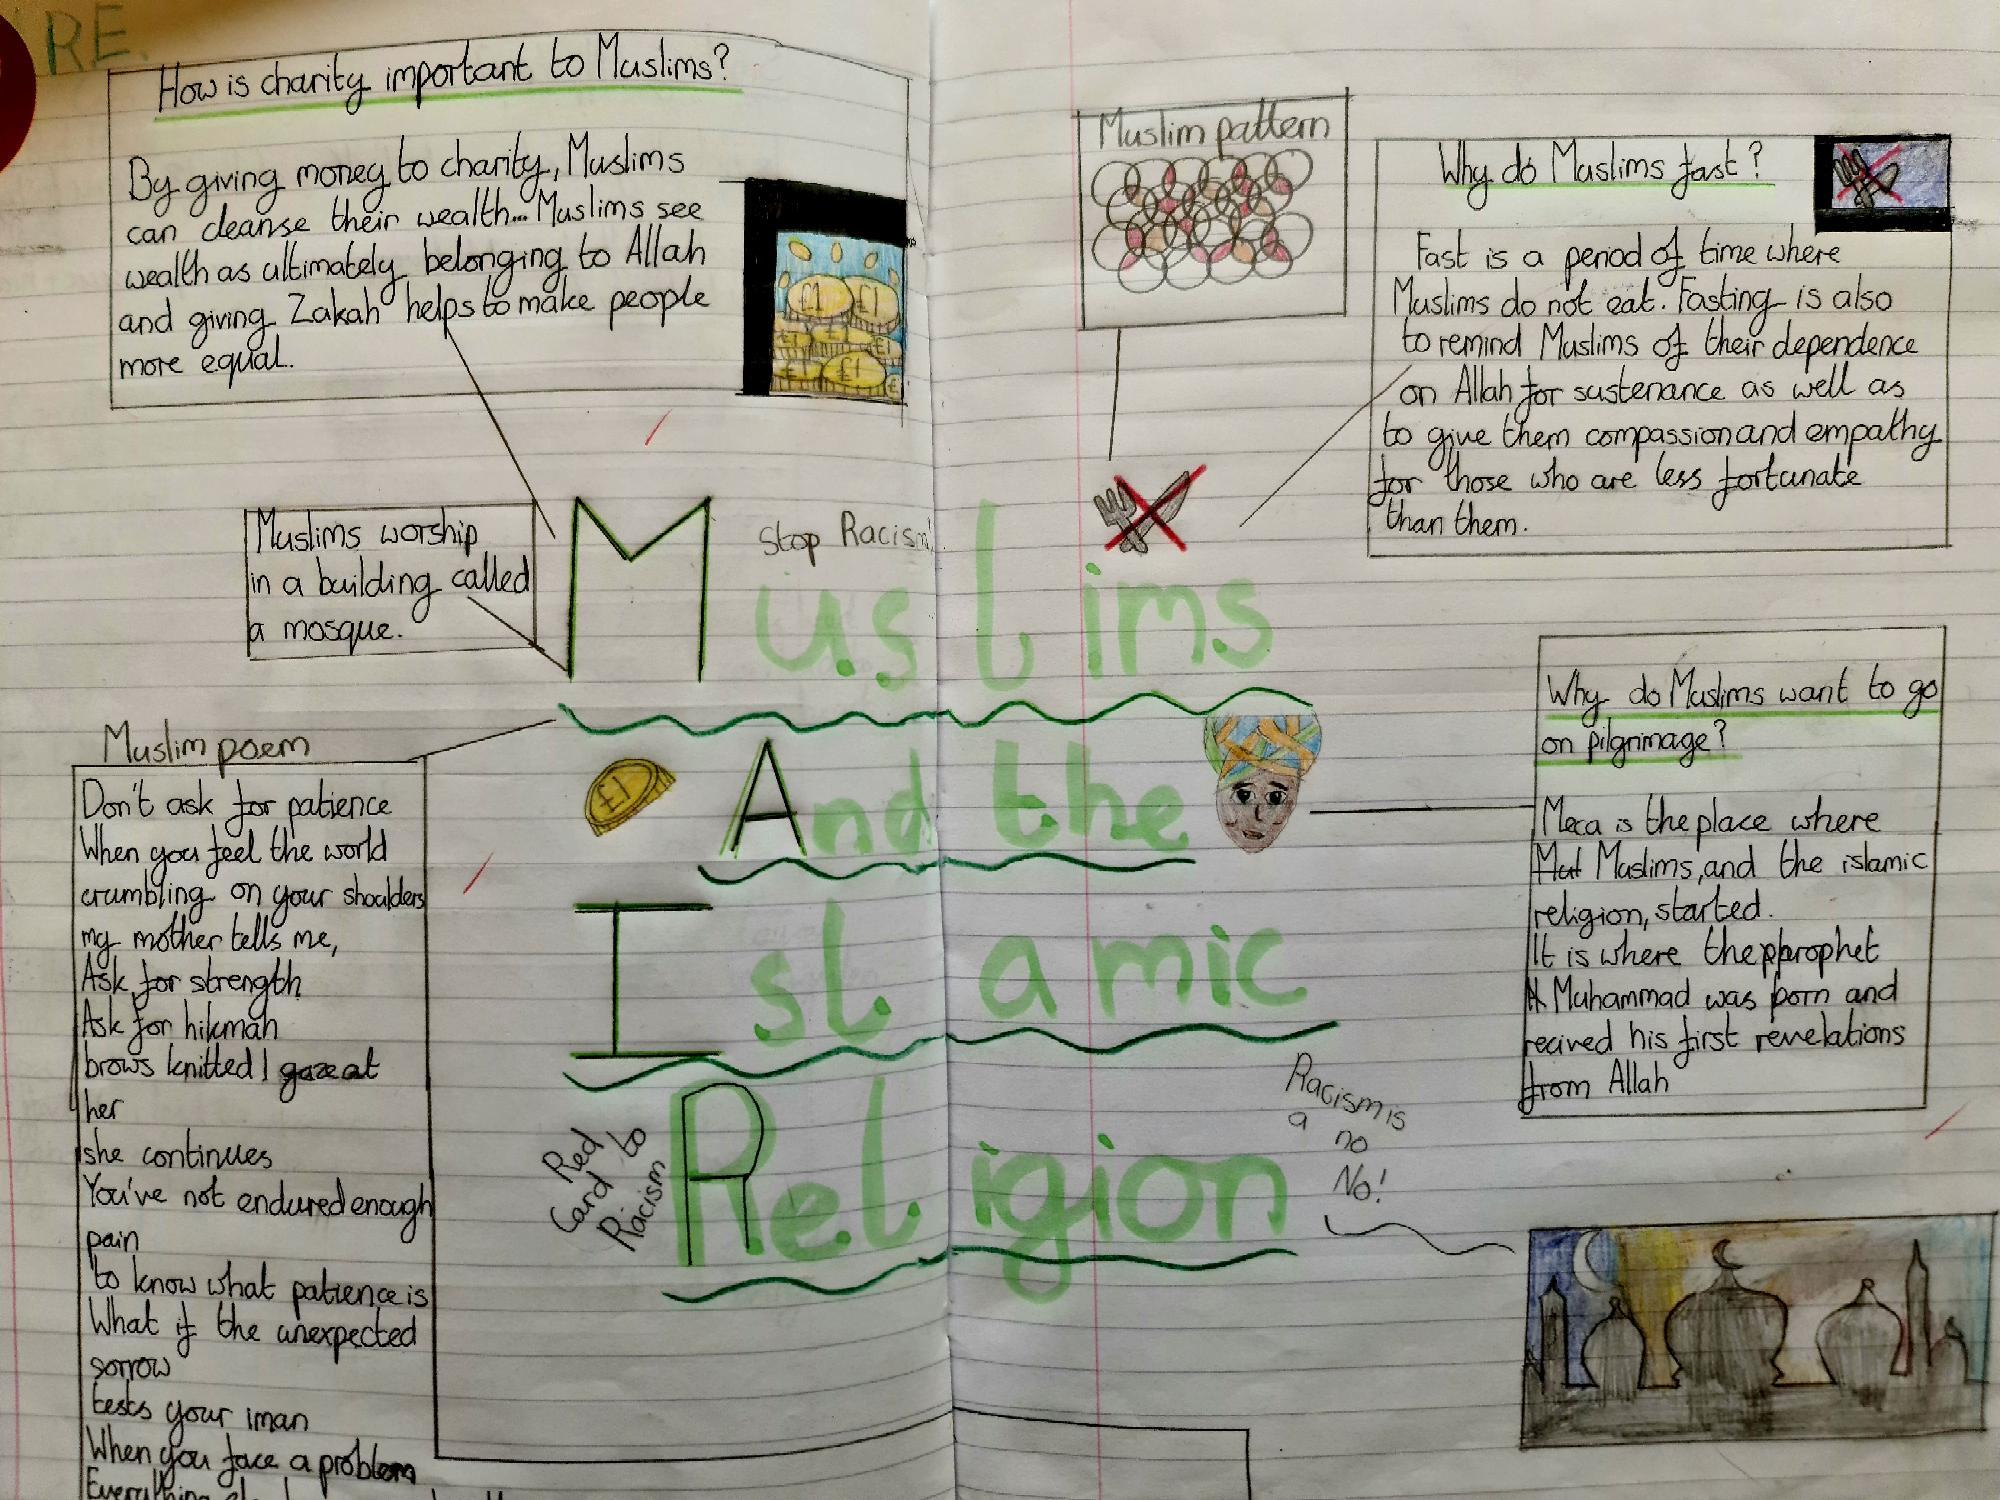 RE.
How is charity important to Muslims?
By giving money to charity, Muslims
can cleanse their wealth... Muslims see
wealth as ultimately belonging to Allah
and giving Zakah helps to make people
more equal.
£1 £1
£1
Muslim pattern
Why do Muslims fast?
Fast is a period of time where
Muslims do not eat. Fasting is also
to remind Muslims of their dependence
on Allah for sustenance as well as
to give them compassion and empathy
for those who are less fortunate
than them.
Muslims worship
in a building called
a mosque.
Stop Racism!
Muslims
And the
Islamic
Religion
£1
Why do Muslims want to go
on pilgrimage?
Meca is the place where
Mut Muslims, and the islamic
religion, started.
It is where the prophet
Muhammad was born and
recived his first revelations
from Allah
Muslim poem
Don't ask for patience
When you feel the world
crumbling on your shoulders
my mother tells me,
Ask for strength
Ask for hikmah
brows knitted I gaze at
her
she continues
You've not endured enough
pain
to know what patience is
What if the unexpected
sorrow
tests your iman
When you face a problem
Everything
Red
Card to
Racism
Racism is
a no
No!